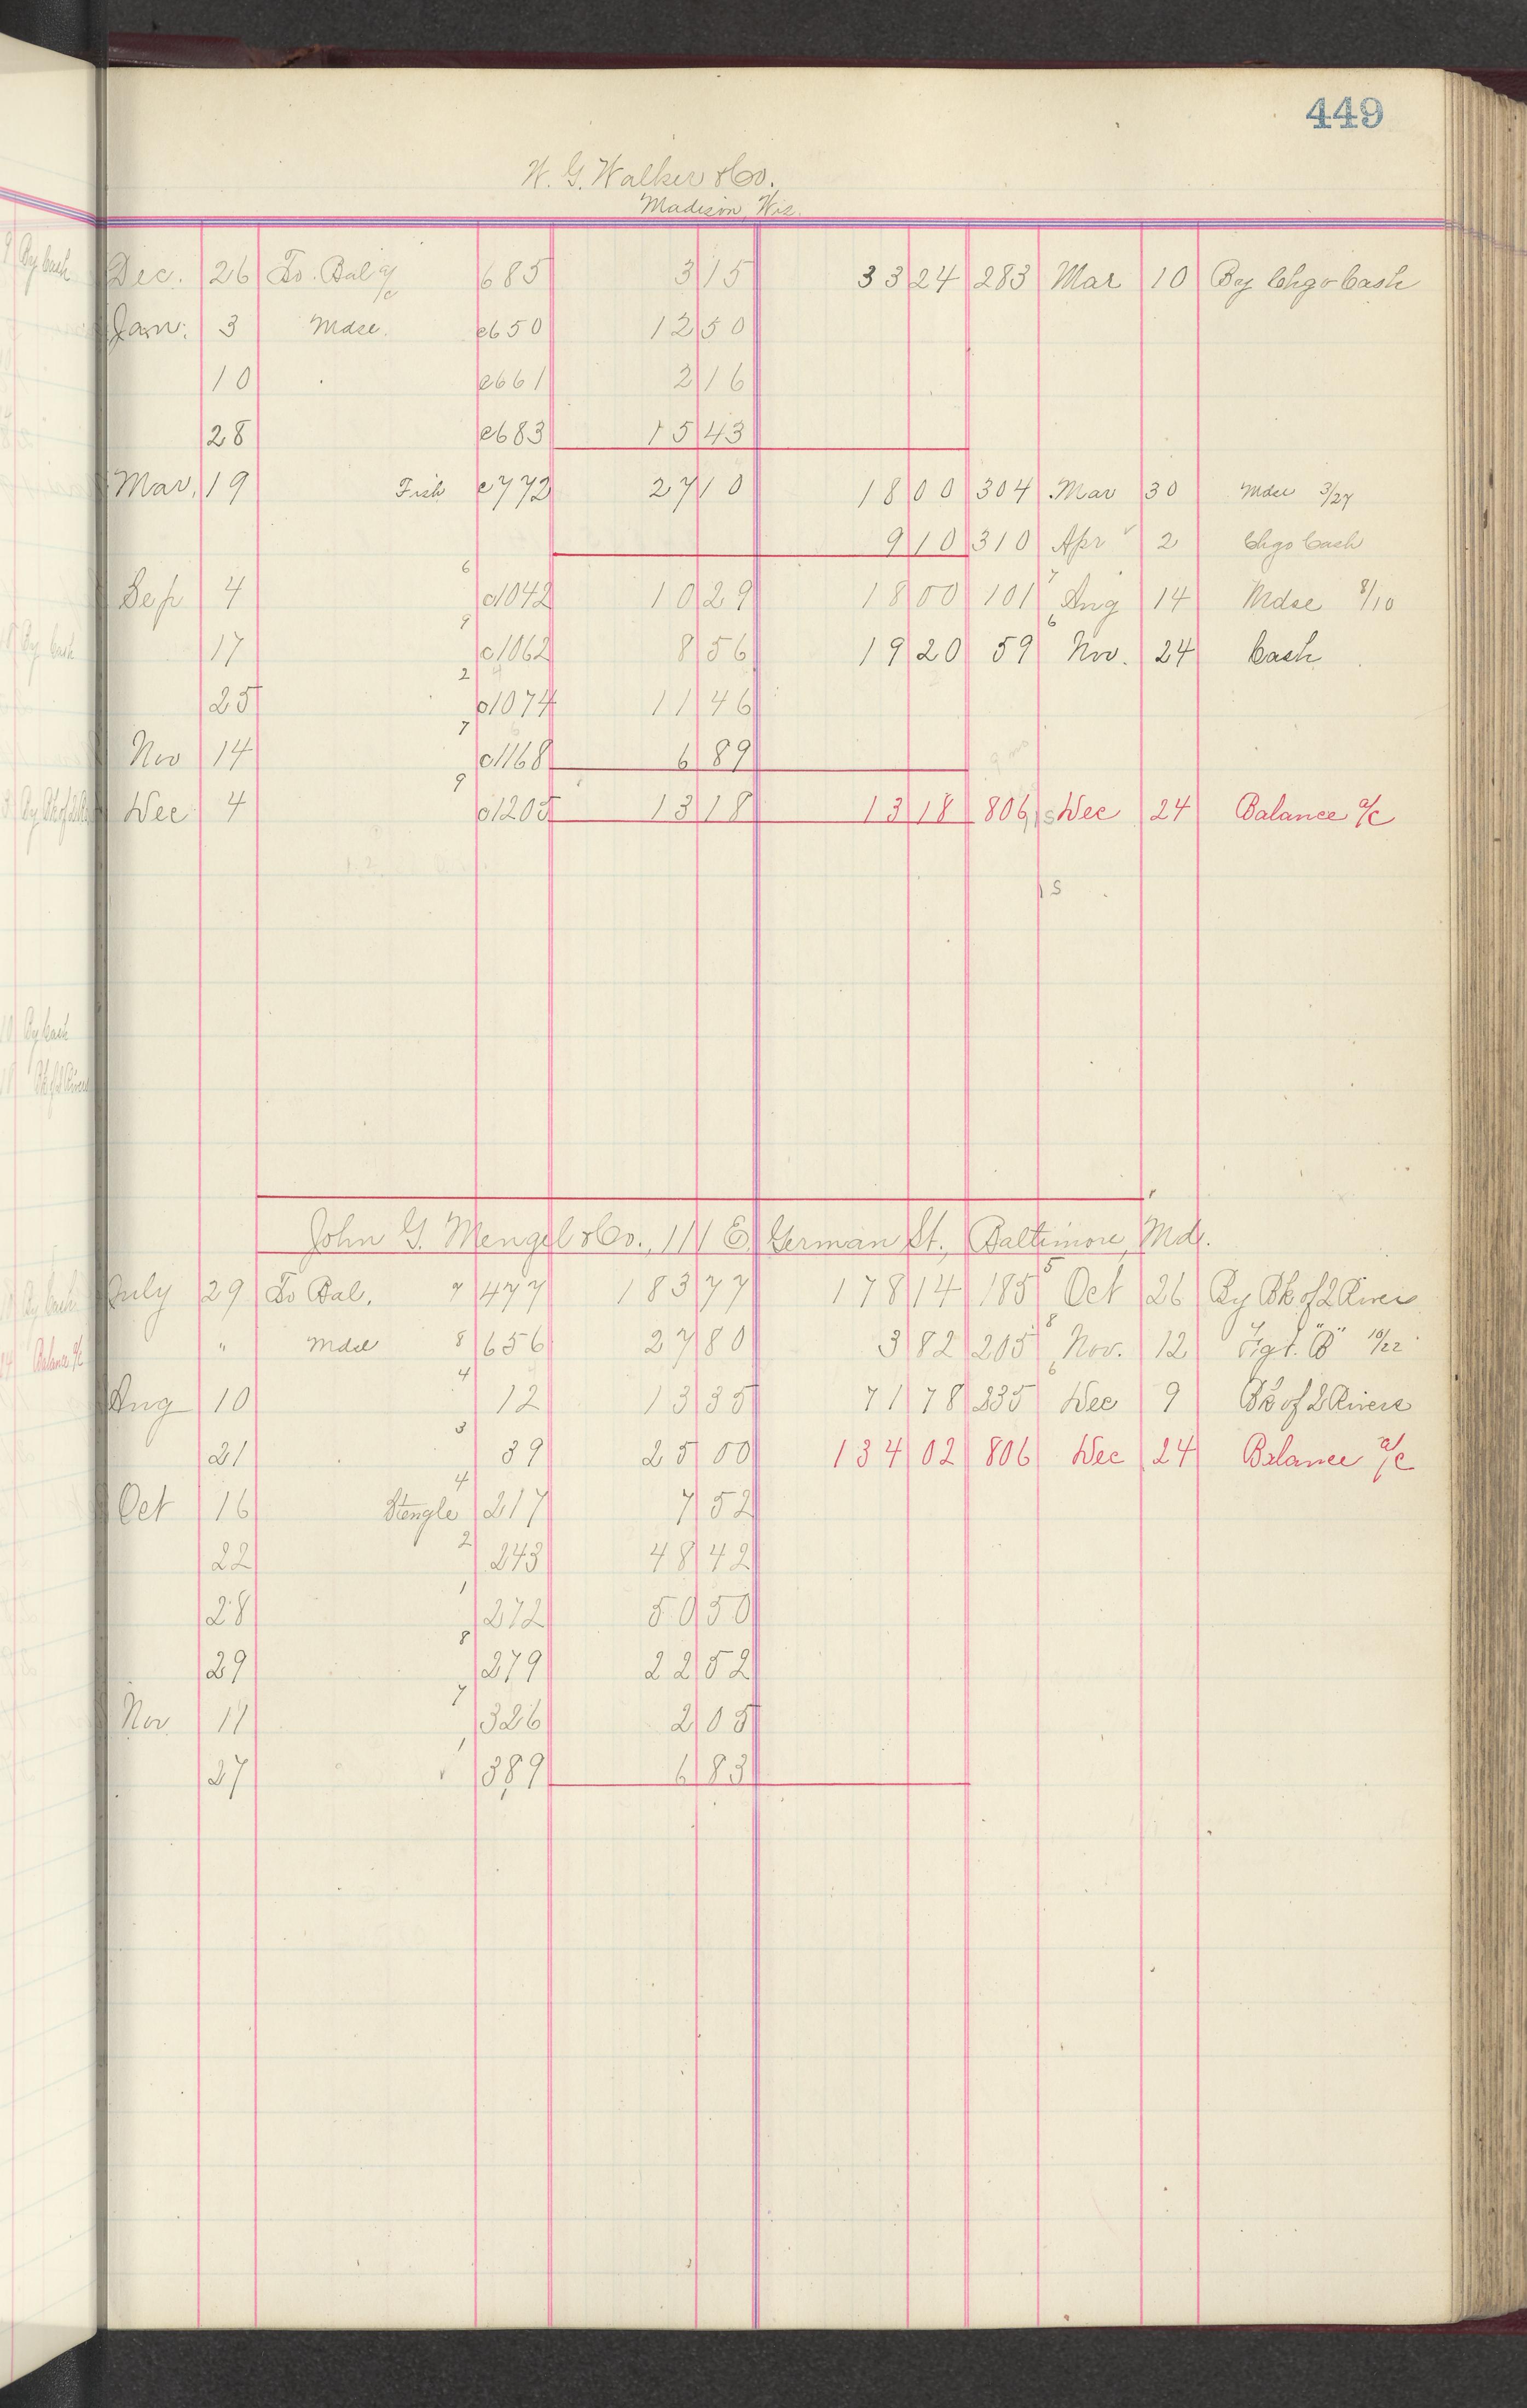 449
W. G. Walker & Co.
Madison, Wis.
Dec. 26 To Bal a/c 685 3 15 33 24 283 Mar 10 By Chgo Cash
Jan. 3 Mdse. c650 12 50
10 c661 2 16
28 c683 15 43
Mar. 19 Fish c772 27 10 18 00 304 Mar 30 Mdse 3/27
9 10 310 Apr 2 Chgo Cash
Sep 4 6 c1042 10 29 18 00 101 7 Aug 14 Mdse 8/10
17 9 c1062 8 56 19 20 59 6 Nov. 24 Cash
25 2 c1074 11 46
Nov 14 7 c1168 6 89
Dec 4 9 c1205 13 18 13 18 806 Dec 24 Balance a/c
John G. Mengel & Co., 111 E. German St., Baltimore, Md.
July 29 To Bal. 7 477 183 77 178 14 185 5 Oct 26 By Bk of 2 Rivers
" Mdse 8 656 27 80 3 82 205 8 Nov. 12 Frgt. "B" 10/22
Aug 10 4 12 13 35 71 78 235 6 Dec 9 Bk of 2 Rivers
21 3 39 25 00 134 02 806 Dec 24 Balance a/c
Oct 16 Stengle 4 217 7 52
22 2 243 48 42
28 1 272 50 50
29 8 279 22 52
Nov. 11 7 326 2 05
27 1 389 6 83